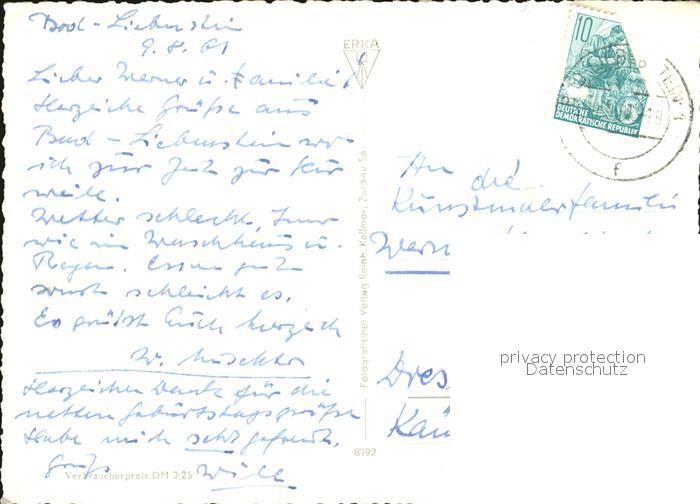 Bad-Liebenstein
9.8.61
Lieber Werner u. Familie!
Herzliche Grüße aus
Bad-Liebenstein wo
ich zur Zeit zur Kur
weile.
Wetter schlecht,
wie im Waschhaus u.
Regen. Essen gut
sonst schleicht es.
Es grüßt Euch herzlich
W.
Herzlichen Dank für die
netten Geburtstagsgrüße
Habe mich sehr gefreut.
Gruß Willi
Verbraucherpreis DM 0,25
ERKA
Fotografischer Verlag Reinh. Kallmer, Zwickau Sa.
8792
10
DEUTSCHE
DEMOKRATISCHE REPUBLIK
An die
Kunstmalerfamilie
Wern
Dres
privacy protection
Datenschutz